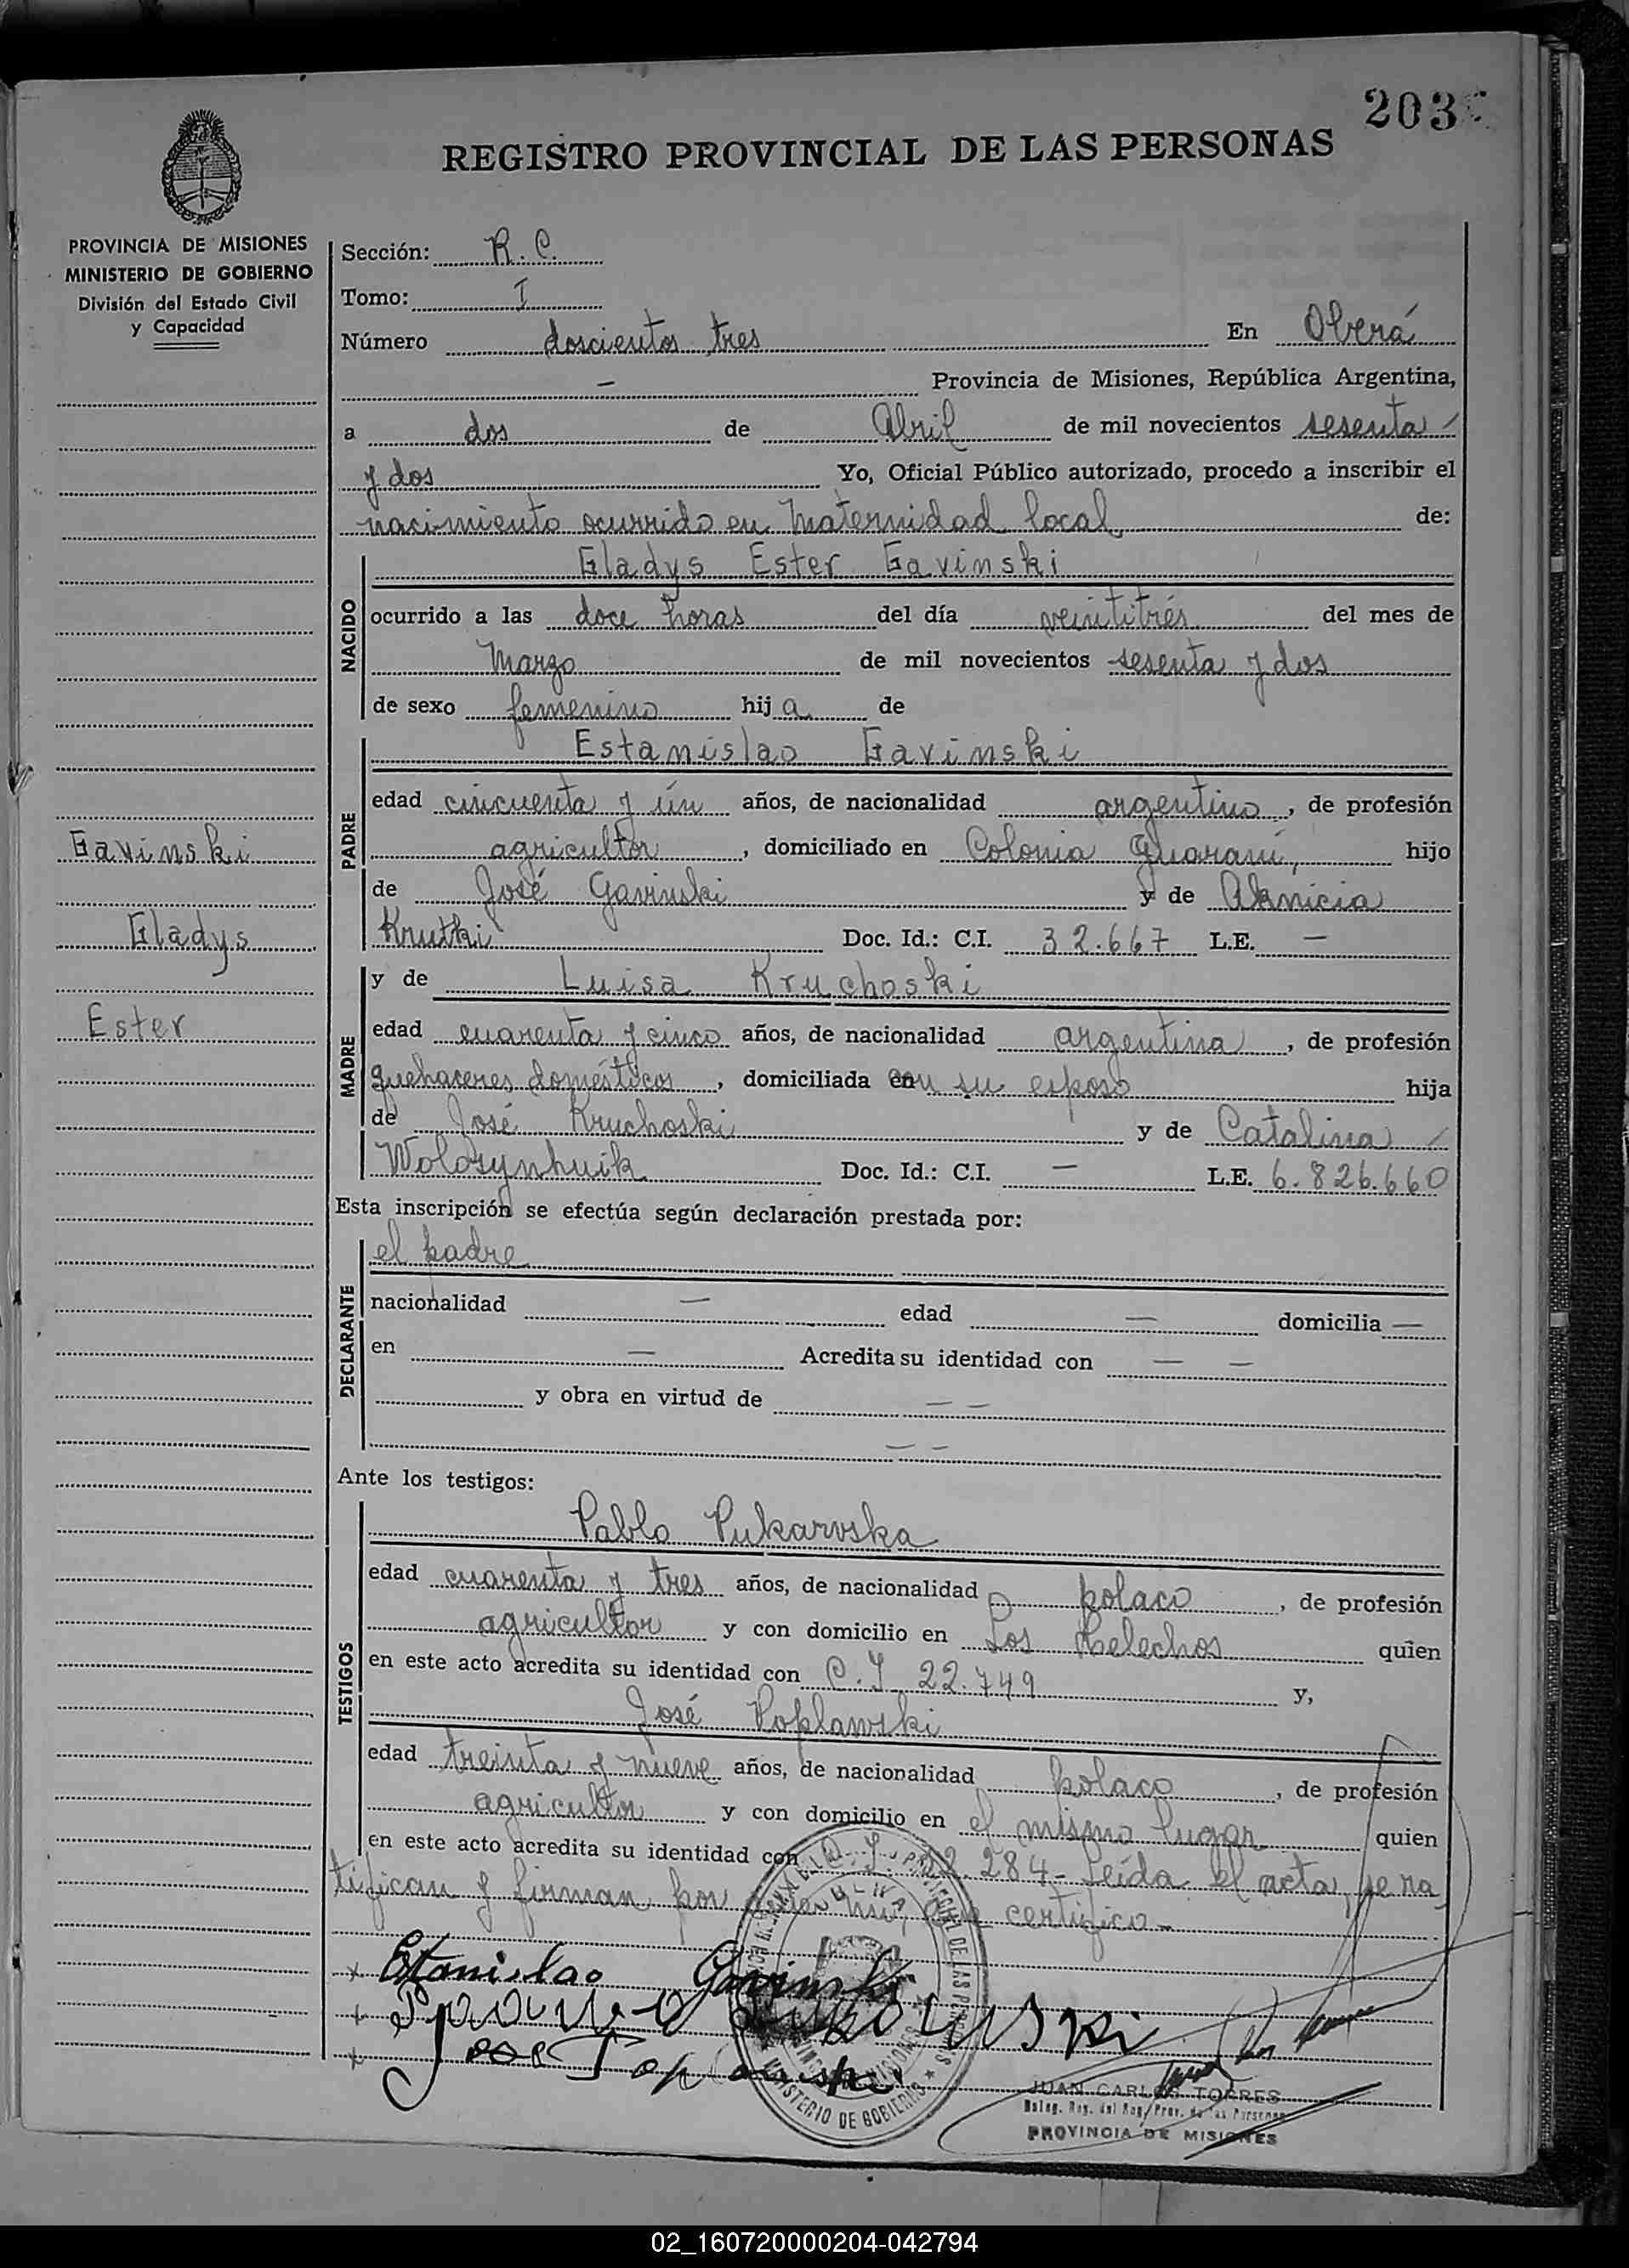 203
REGISTRO PROVINCIAL DE LAS PERSONAS
PROVINCIA DE MISIONES
MINISTERIO DE GOBIERNO
División del Estado Civil
y Capacidad
Gavinski
Gladys
Ester
Sección: R. C.
Tomo: I
Número doscientos tres En Oberá
— Provincia de Misiones, República Argentina,
a dos de Abril de mil novecientos sesenta
y dos Yo, Oficial Público autorizado, procedo a inscribir el
nacimiento ocurrido en Maternidad local de:
NACIDO
Gladys Ester Gavinski
ocurrido a las doce horas del día veintitrés del mes de
Marzo de mil novecientos sesenta y dos
de sexo femenino hija de
PADRE
Estanislao Gavinski
edad cincuenta y ún años, de nacionalidad argentino, de profesión
agricultor, domiciliado en Colonia Guaraní, hijo
de José Gavinski y de Aknicia
Krutki Doc. Id.: C.I. 32.667 L.E. —
MADRE
y de Luisa Kruchoski
edad cuarenta y cinco años, de nacionalidad argentina, de profesión
quehaceres domésticos, domiciliada con su esposo hija
de José Kruchoski y de Catalina
Wolosynhuik Doc. Id.: C.I. — L.E. 6.826.660
Esta inscripción se efectúa según declaración prestada por:
DECLARANTE
el padre
nacionalidad — edad — domicilia —
en — Acredita su identidad con — —
y obra en virtud de — —
— —
Ante los testigos:
TESTIGOS
Pablo Pukarvska
edad cuarenta y tres años, de nacionalidad polaco, de profesión
agricultor y con domicilio en Los Helechos quien
en este acto acredita su identidad con C.I. 22.749 y,
José Poplawski
edad treinta y nueve años, de nacionalidad polaco, de profesión
agricultor y con domicilio en el mismo lugar quien
en este acto acredita su identidad con C.I. 284- Leída el acta, se ra
tifican y firman por ante mí, que certifico-
x Estanislao Gavinski
x
x José Poplawski
MINISTERIO DE GOBIERNO
JUAN CARLOS TORRES
PROVINCIA DE MISIONES
02_160720000204-042794